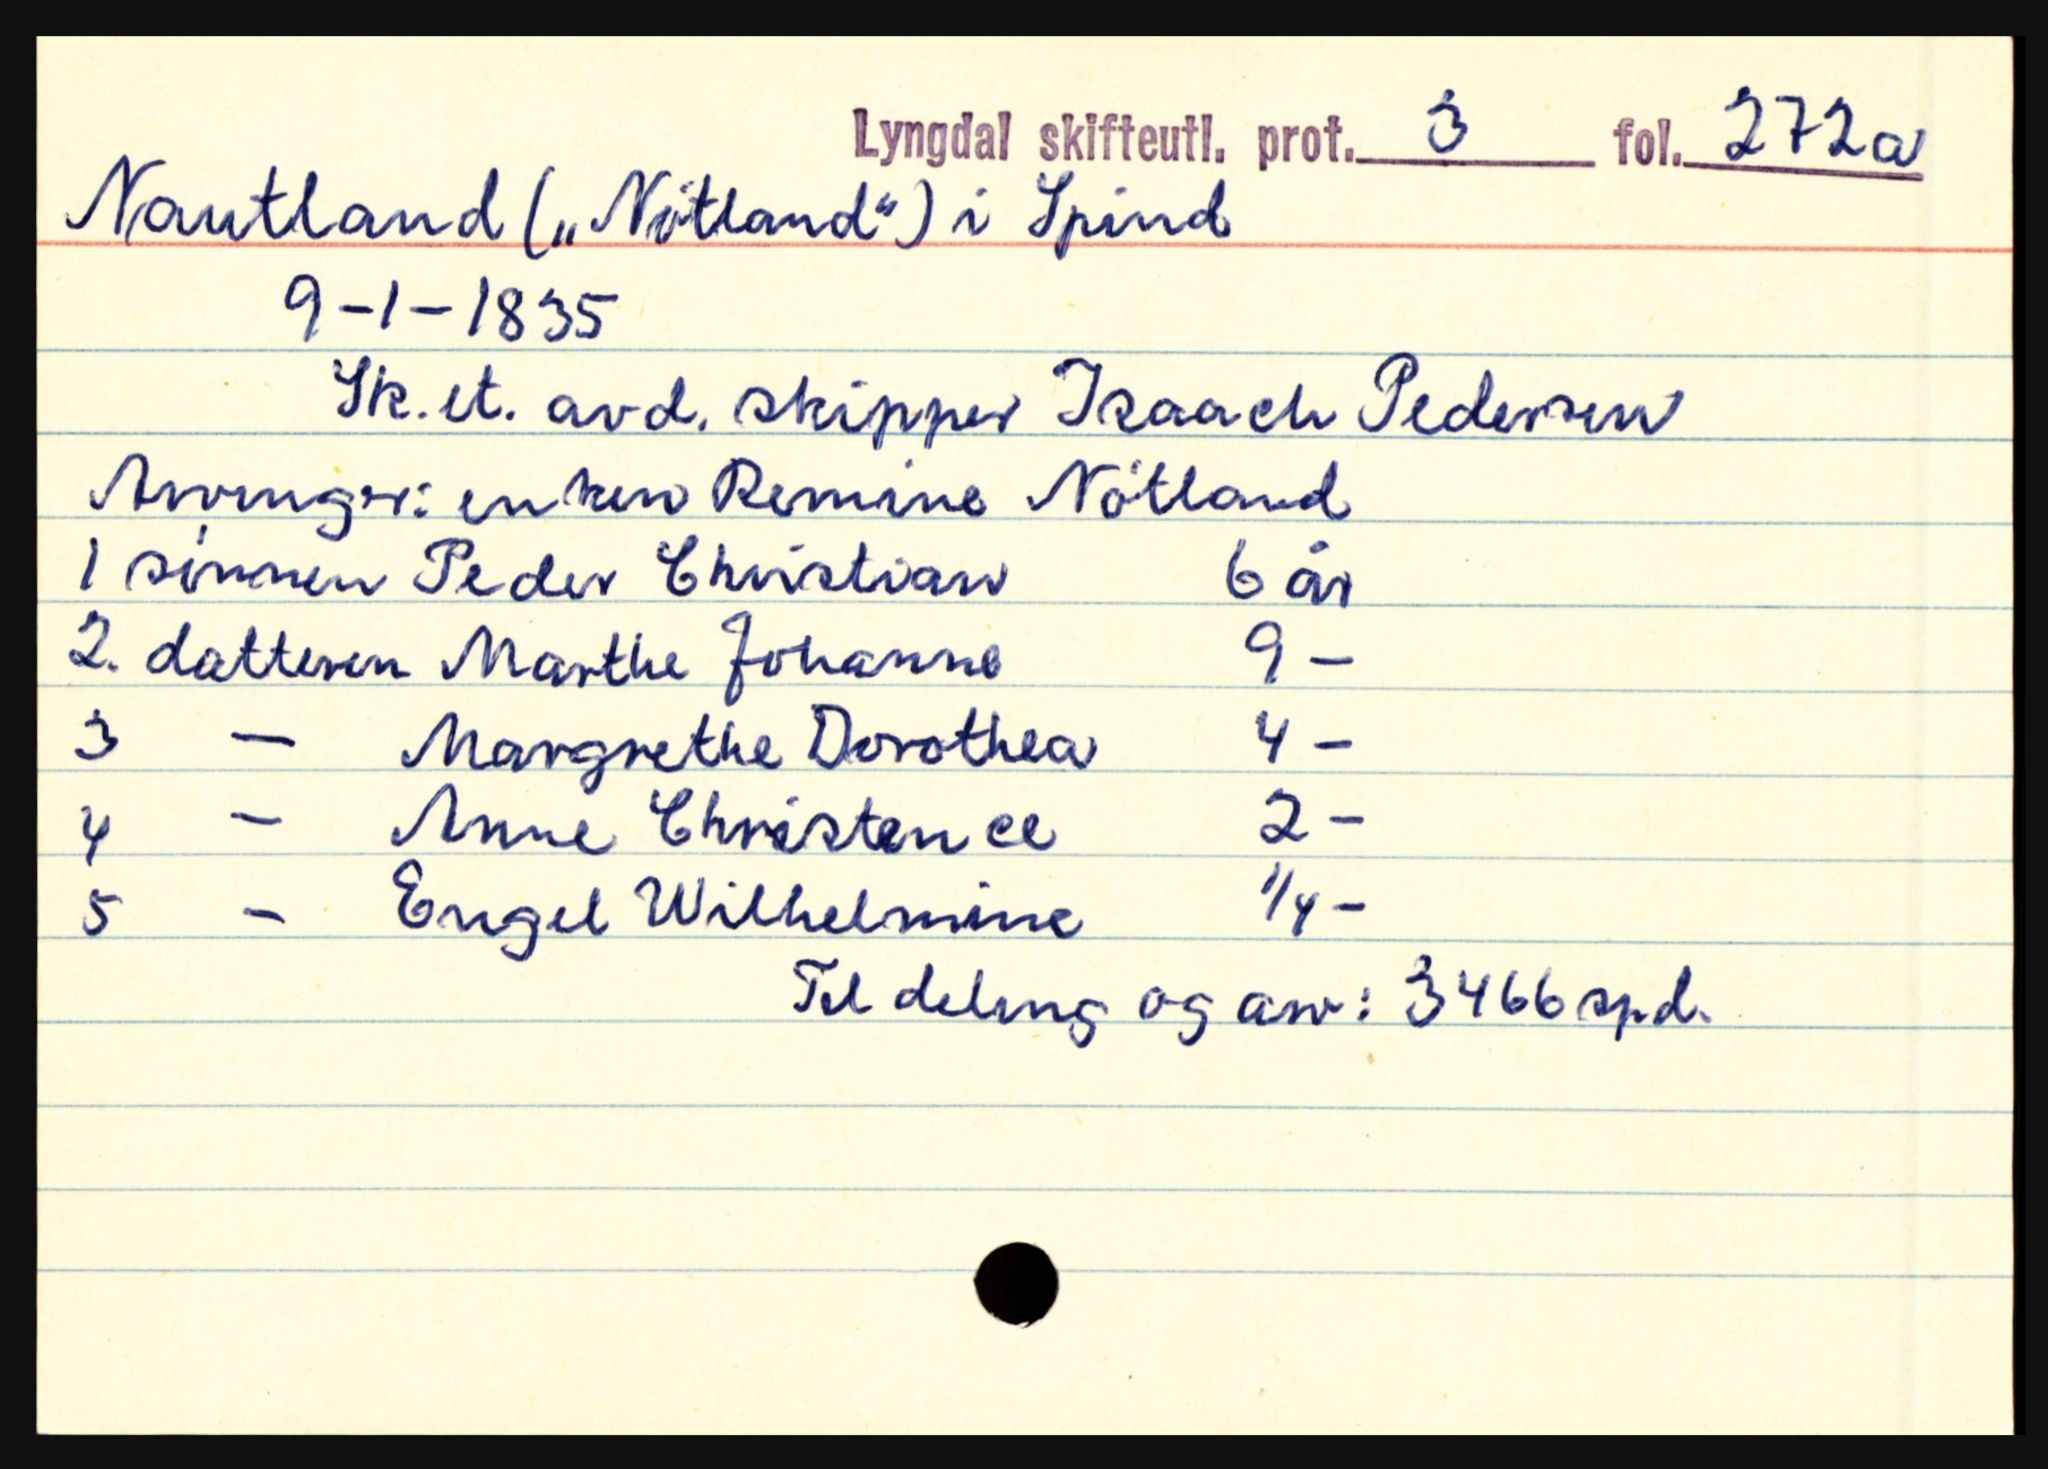 Lyngdal skifteutl. prot. 3 fol. 272a
Nautland („Nötland“) i Spind
9-1-1835
Sk. et. avd. skipper Isaach Pedersen
Arvinger: enken Remine Nötland
1 sönnen Peder Christian 6 år
2. datteren Marthe Johanne 9 -
3 - Margrethe Dorothea 4 -
4 - Anne Christence 2 -
5 - Engel Wilhelmine 1/4 -
Til deling og arv: 3466 spd.